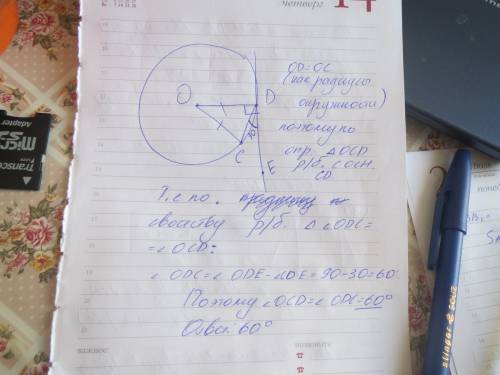 четверг 14
O
D
C
E
OD=OC
(как радиусы
окружности)
поэтому по
опр. △OCD
р/б. с осн.
CD
Т.е по.
свойству р/б. △ ∠ODC=
=∠OCD:
∠ODC=∠ODE-∠CDE=90-30=60
Поэтому ∠OCD=∠ODC=60°
Ответ: 60°
важное:
позвоните:
micro SD
Adapter
Transcend